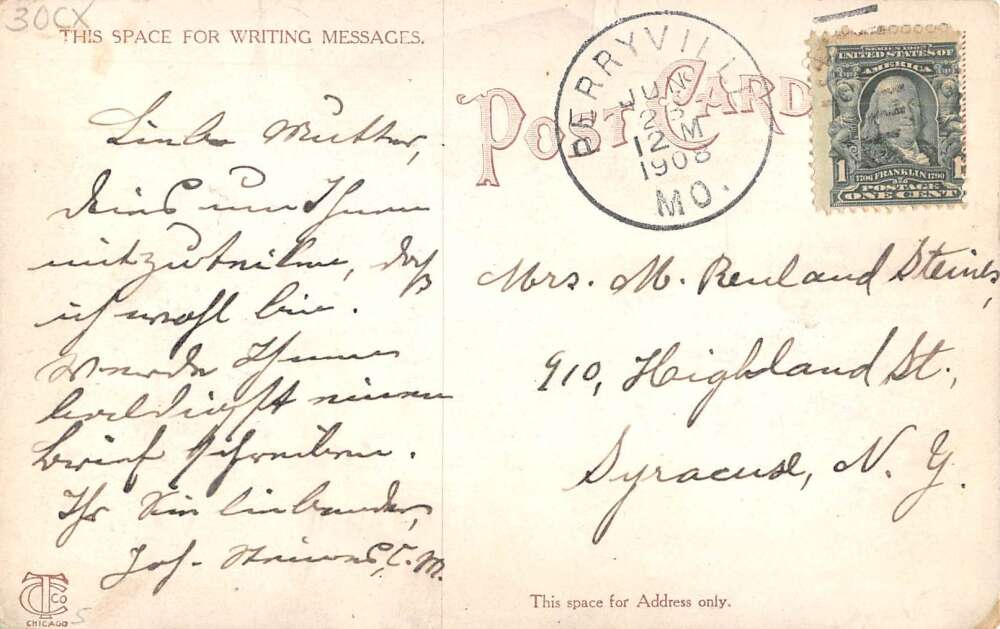 30CX
THIS SPACE FOR WRITING MESSAGES.
POST CARD
PERRYVILLE
JUN
25
12 M
1908
MO.
SERIES 1902
UNITED STATES OF
AMERICA
1
1706 FRANKLIN 1790
POSTAGE
ONE CENT
Liebe Mutter,
dieses um Ihnen
mitzuteilen, daß
ich wohl bin.
Werde Ihnen
baldigst einen
Brief schreiben.
Ihr Sie liebender,
Jos. Steines, C. M.
Mrs. M. Reuland Steines,
910, Highland St.,
Syracuse, N. Y.
CTCO
CHICAGO
This space for Address only.